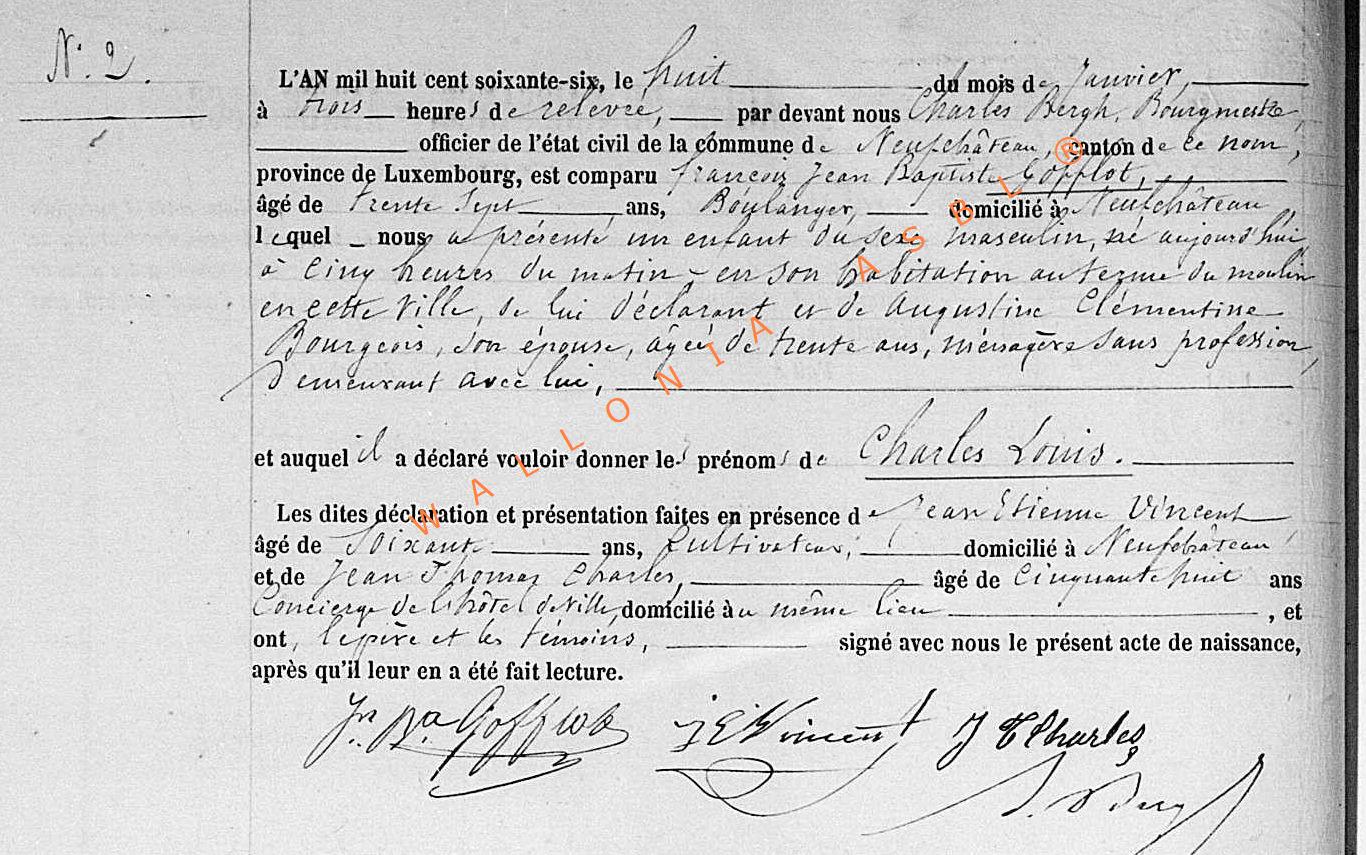 N.° 2.
L'AN mil huit cent soixante-six, le huit du mois de Janvier,
à trois heures de relevée, par devant nous Charles Bergh, Bourgmestre,
officier de l'état civil de la commune de Neufchâteau, canton de ce nom,
province de Luxembourg, est comparu françois Jean Baptiste Gofflot,
âgé de trente Sept ans, Boulanger, domicilié à Neufchâteau,
lequel nous a présenté un enfant du sexe masculin, né aujourd'hui
à cinq heures du matin en son habitation au terme du moulin
en cette Ville, de lui déclarant et de Augustine Clémentine
Bourgeois, son épouse, âgée de trente ans, ménagère sans profession,
demeurant avec lui,
et auquel il a déclaré vouloir donner les prénoms de Charles Louis.
Les dites déclaration et présentation faites en présence de Jean Etienne Vincent
âgé de Soixante ans, Cultivateur, domicilié à Neufchâteau,
et de Jean Thomas Charles, âgé de Cinquante huit ans
Concierge de l'hôtel de Ville, domicilié au même lieu, et
ont, le père et les témoins, signé avec nous le présent acte de naissance,
après qu'il leur en a été fait lecture.
Jn Bte Gofflot J E Vincent J T Charles
WALLONIA ASBL ®